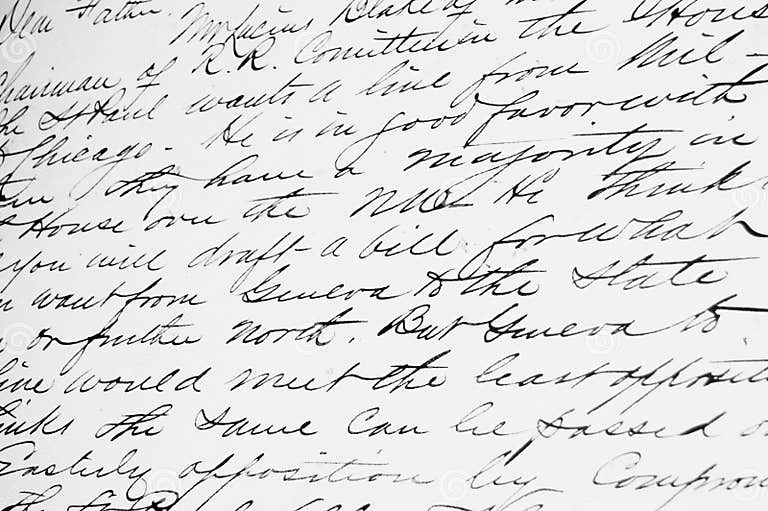 Dear Father. Mr Lucius Blake of
Chairman of R.R. Comittee in the House
the St Paul wants a line from Mil-
Chicago. He is in good favor with
they have a majority in
House over the He thinks
you will draft a bill for what
want from Geneva to the State
or further north. But Geneva to
line would meet the least oppositi
inks the same can be passed o
Easterly opposition by Comprom
the